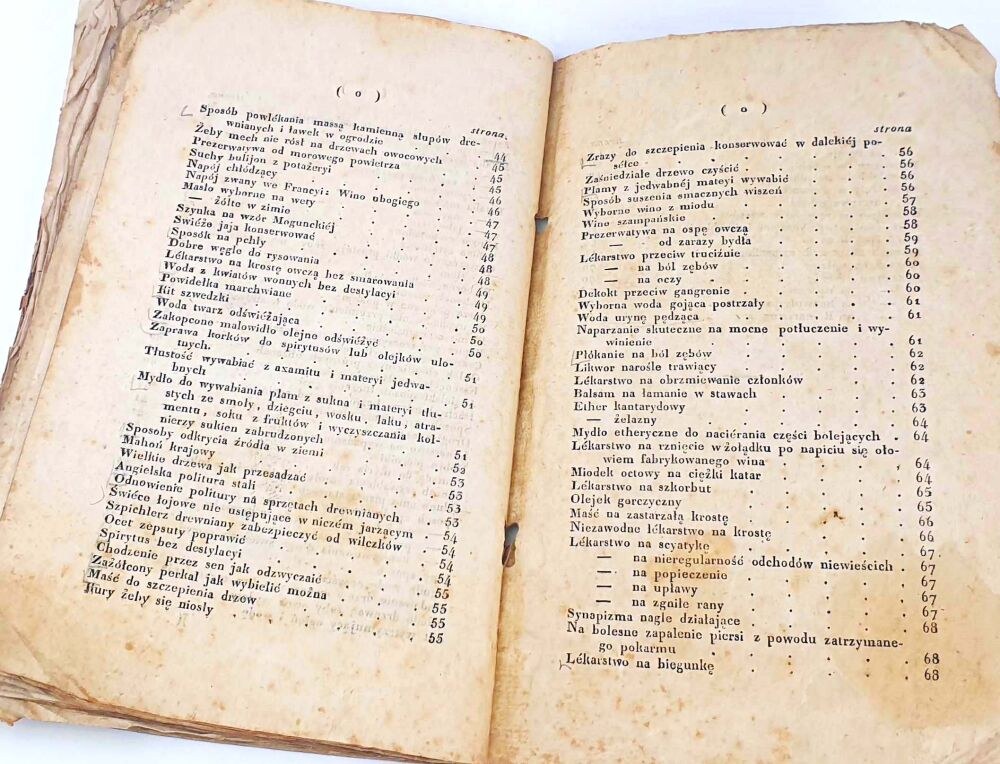 ( o )
strona.
Sposób powlékania massą kamienną słupów dre-
wnianych i ławek w ogrodzie . . . 44
Żeby mech nie rósł na drzewach owocowych . 45
Prezerwatywa od morowego powietrza . . 45
Suchy bulijon z potażeryi . . . 45
Napój chłodzący . . . 46
Napój zwany we Francyi: Wino ubogiego . 46
Masło wyborne na wety . . . 46
— żółte w zimie . . . 47
Szynka na wzór Moguncki­éj . . . 47
Świéże jaja konserwować . . . 47
Sposób na pchły . . . 48
Dobre węgle do rysowania . . . 48
Lékarstwo na krostę owczą bez smarowania . 48
Woda z kwiatów wonnych bez destylacyi . 49
Powidełka marchwiane . . . 49
Kit szwedzki . . . 49
Woda twarz odświéżająca . . . 50
Zakopcone malowidło olejne odświéżyć . 50
Zaprawa korków do spirytusów lub olejków ulo-
tnych. . . . 51
Tłustość wywabiać z axamitu i materyi jedwa-
bnych . . . 51
Mydło do wywabiania plam z sukna i materyi tłu-
stych ze smoły, dziegciu, wosku, laku, atra-
mentu, soku z fruktów i wyczyszczania koł-
nierzy sukien zabrudzonych . . . 51
Sposoby odkrycia źródła w ziemi . . . 52
Mahoń krajowy . . . 53
Wielkie drzewa jak przesadzać . . . 53
Angielska politura stali . . . 53
Odnowienie politury na sprzętach drewnianych . 53
Świéce łojowe nie ustępujące w niczém jarzącym . 54
Szpichlerz drewniany zabezpieczyć od wilczków . 54
Ocet zepsuty poprawić . . . 54
Spirytus bez destylacyi . . . 54
Chodzenie przez sen jak odzwyczaić . . 55
Zażółcony perkal jak wybielić można . . 55
Maść do szczepienia drzew . . . 55
Kury żeby się niosły . . . 55
( o )
strona
Zrazy do szczepienia konserwować w dalekiéj po-
sélce . . . 56
Zaśniedziałe drzewo czyścić . . . 56
Plamy z jedwabnéj materyi wywabić . . 56
Sposób suszenia smacznych wiszeń . . 57
Wyborne wino z miodu . . . 58
Wino szampańskie . . . 58
Prezerwatywa na ospę owczą . . . 59
— — od zarazy bydła . . . 59
Lékarstwo przeciw truciźnie . . . 60
— na ból zębów . . . 60
— na oczy . . . 60
Dekokt przeciw gangrenie . . . 61
Wyborna woda gojąca postrzały . . . 61
Woda urynę pędząca . . .
Naparzanie skuteczne na mocne potłuczenie i wy-
winienie . . . 61
Płókanie na ból zębów . . . 62
Likwor narośle trawiący . . . 62
Lékarstwo na obrzmiewanie członków . . 62
Balsam na łamanie w stawach . . . 63
Ether kantarydowy . . . 63
— żelazny . . . 64
Mydło etheryczne do naciérania części bolejących . 64
Lékarstwo na rznięcie w żołądku po napiciu się oło-
wiem fabrykowanego wina . . . 64
Miodek octowy na ciężki katar . . . 64
Lékarstwo na szkorbut . . . 65
Olejek gorczyczny . . . 65
Maść na zastarzałą krostę . . . 66
Niezawodne lékarstwo na krostę . . . 66
Lékarstwo na scyatykę . . . 67
— na nieregularność odchodów niewieścich . 67
— na popieczenie . . . 67
— na upławy . . . 67
— na zgniłe rany . . . 67
Synapizma nagle działające . . . 68
Na bolesne zapalenie piersi z powodu zatrzymane-
go pokarmu . . . 68
Lékarstwo na biegunkę . . . 68